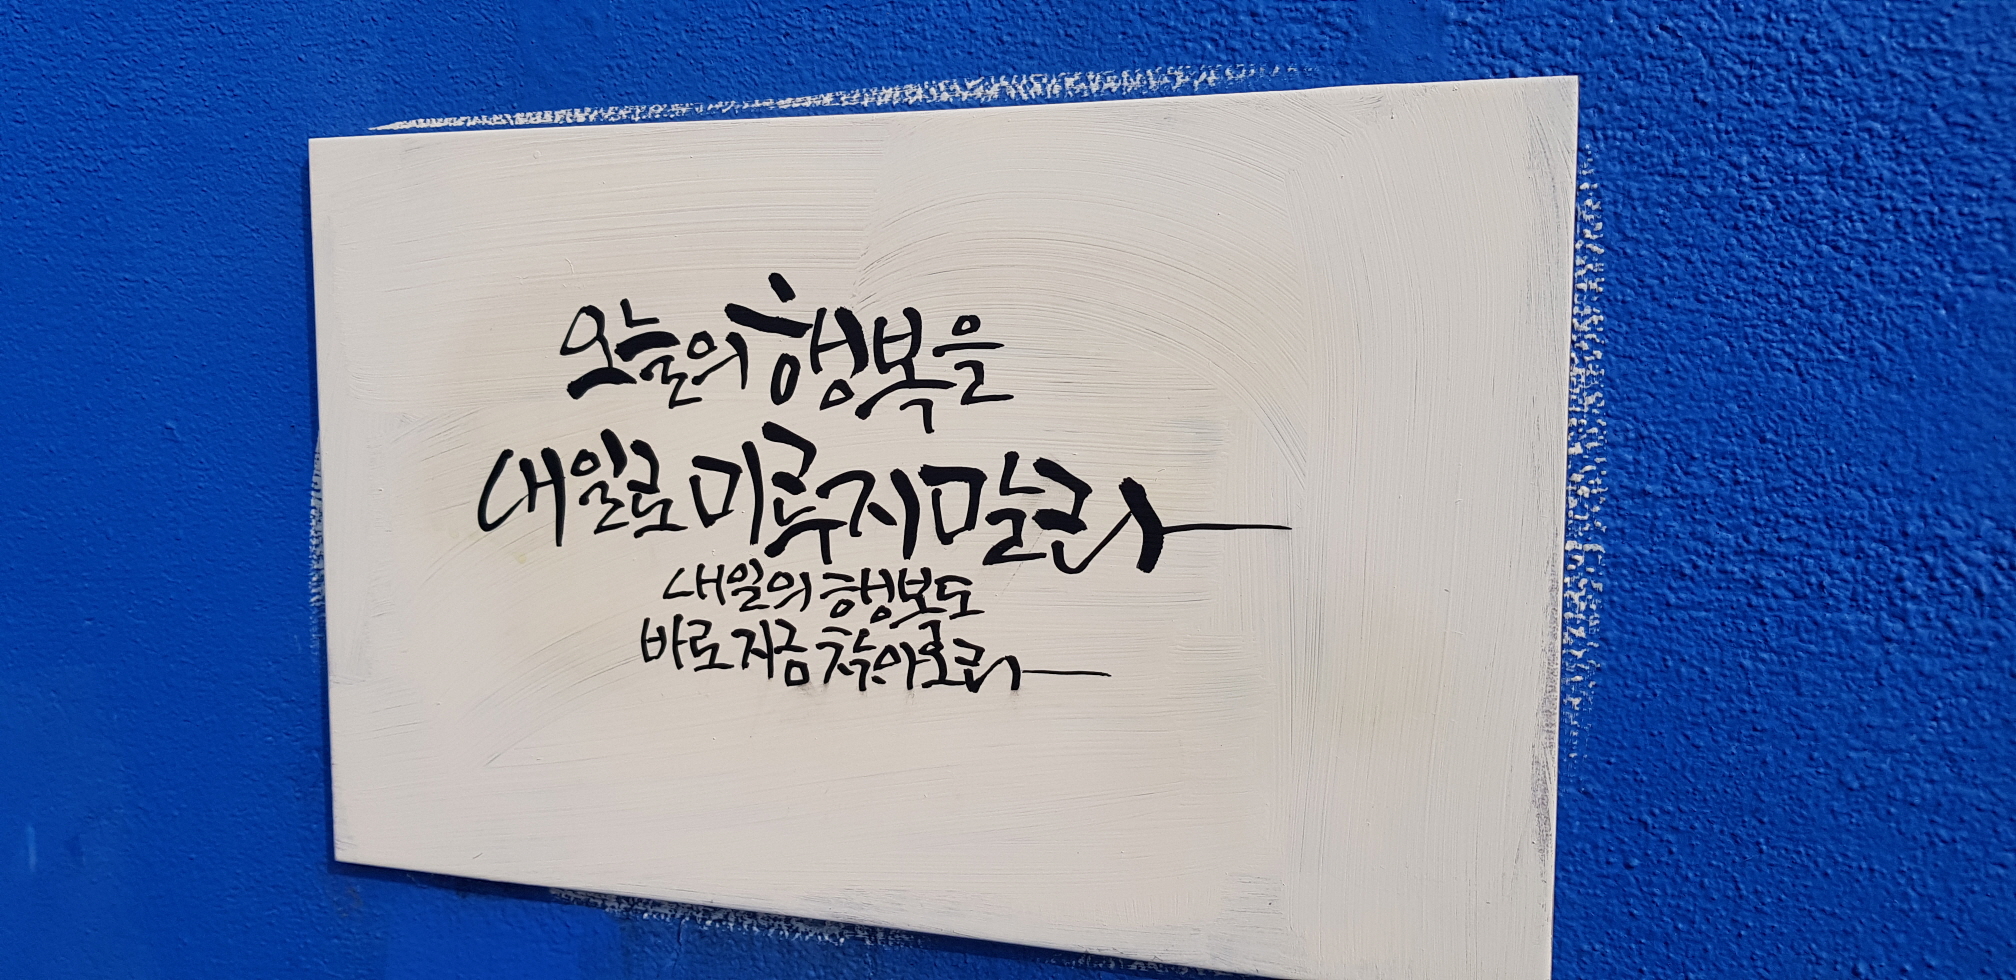 오늘의 행복을
내일로 미루지 말라
내일의 행복도
바로 지금 찾아오라